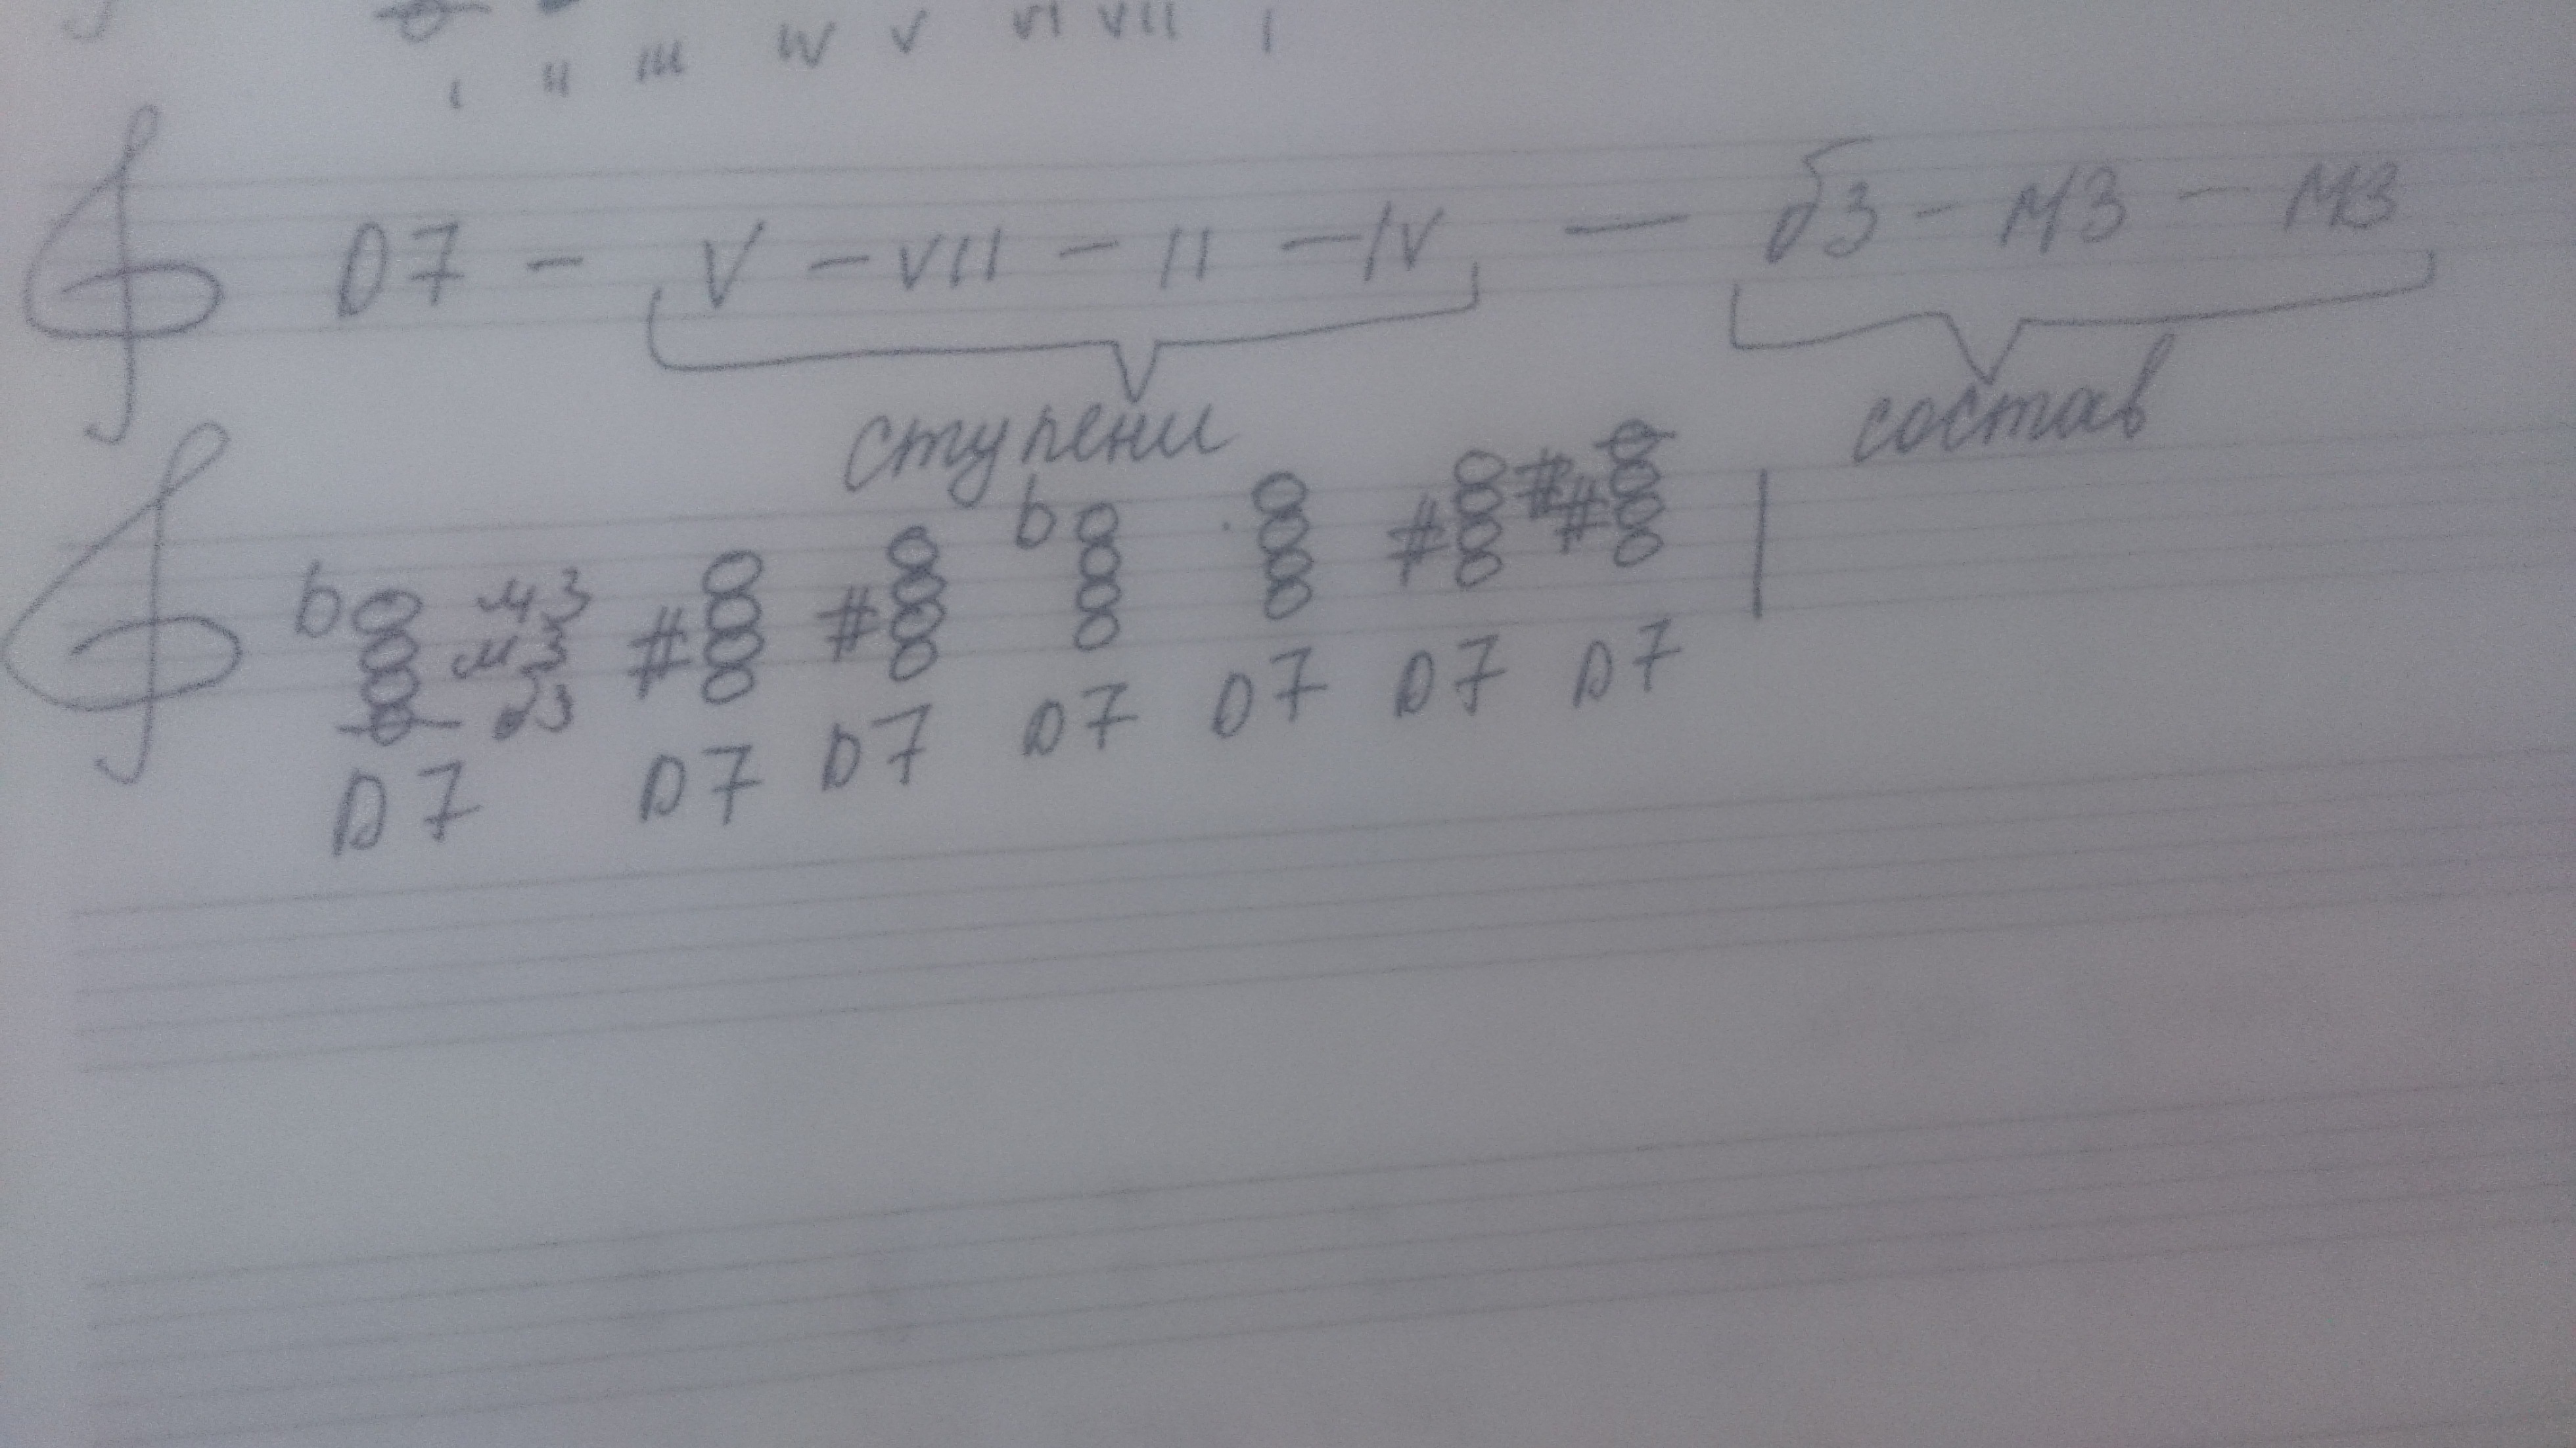 I II III IV V VI VII I
D7 - V - VII - II - IV - б3 - м3 - м3
ступени состав
b м3 # # b # # #
м3
б3
D7 D7 D7 D7 D7 D7 D7